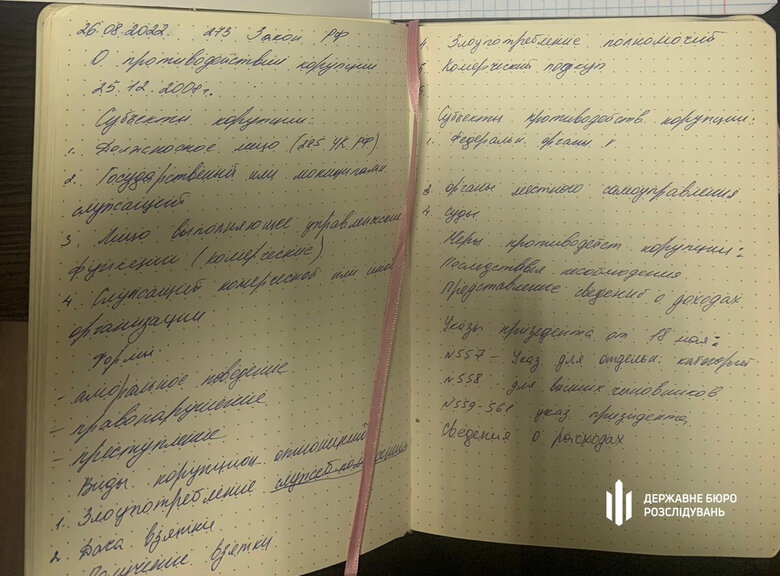 26.08.2022. 273 Закон РФ
О противодействии корупции
25.12.2008г.
Субъекты корупции:
1. Должносное лицо (285 УК РФ)
2. Государственный или мониципальн.
служащий
3. Лицо выполняющее управленческие
функции (комерческие)
4. Служащий комерческой или иной
организации
Формы
- аморальное поведение
- правонарушение
- преступление
Виды корупцион. отношений
1. Злоупотребление служеб.
2. Дача взятки
Получение взятки
4. Злоупотребление полномочий
5. Комерческий подкуп
Субъекты противодейств. корупции:
1. Федеральн. органы
3. органы местного самоуправления
4. суды
Меры противодейст корупции:
Последствия несоблюдения
Представление сведений о доходах
Указы призедента от 18 мая:
N557 - Указ для отдельн. категорий
N558 - для высших чиновников
N559-561 указ. призидента,
Сведения о расходах
ДЕРЖАВНЕ БЮРО
РОЗСЛІДУВАНЬ